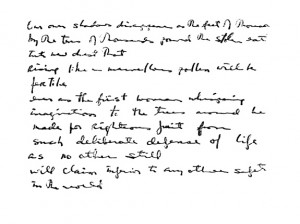 our own shadows disappear as the feet of thousands
by the tens of thousands pound the fallow earth
into new dust that
rising like a marvellous pollen will be
fertile
even as the first woman whispering
imagination to the trees around her
made for righteous fruit from
such deliberate defense of life
as no other still
will claim inferior to any other safety
in the world